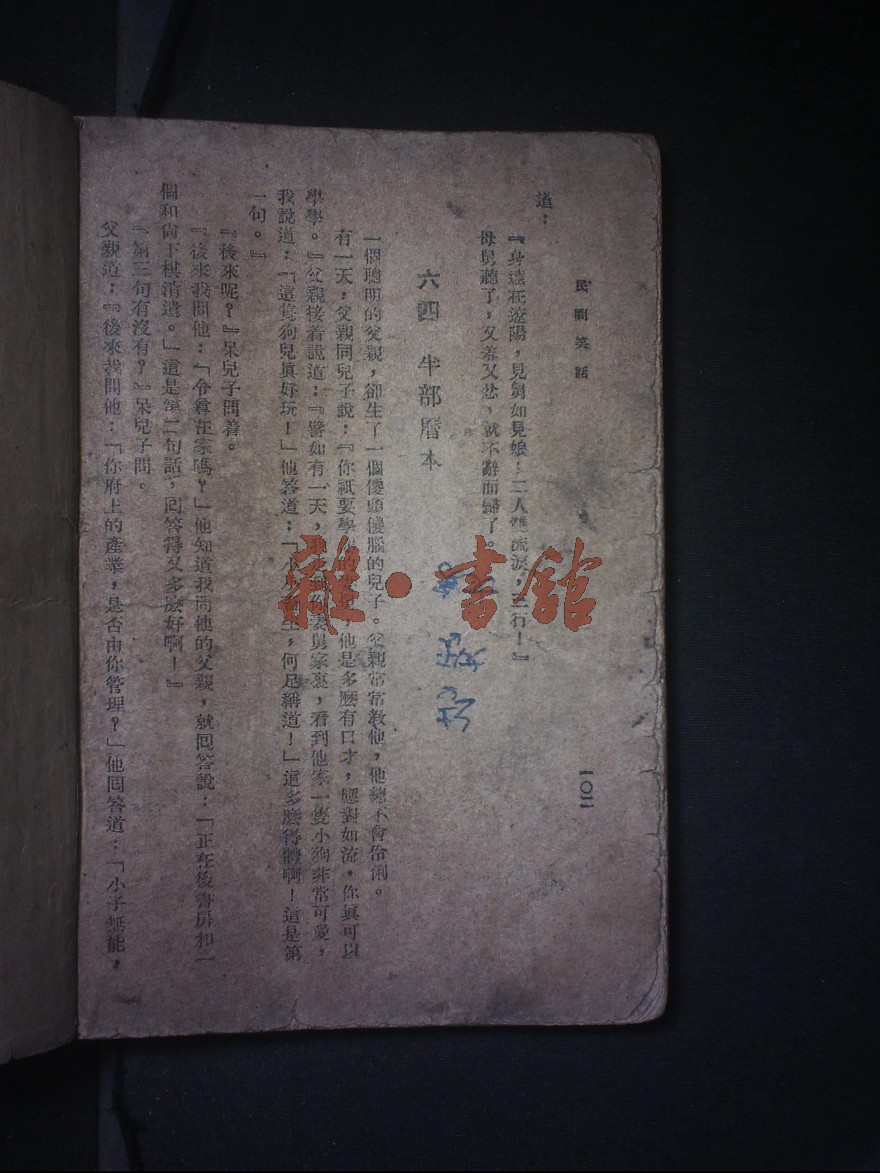 民間笑話
一〇二
道：
『身遠在遼陽，見舅如見娘；二人雙流淚，三行！』
母舅聽了，又羞又忿，就不辭而歸了。
六四 半部曆本
一個聰明的父親，卻生了一個傻頭傻腦的兒子。父親常常教他，他總不會伶俐。
有一天，父親同兒子說：『你祇要學，他是多麼有口才，應對如流，你眞可以
學學。』父親接着說道：『譬如有一天，我妻舅家裏，看到他家一隻小狗非常可愛，
我說道：「這隻狗兒眞好玩！」他答道：「小小畜生，何足稱道！」這多麼得體啊！這是第
一句。』
『後來呢？』呆兒子問着。
『後來我問他：「令尊在家嗎？」他知道我問他的父親，就回答說：「正在後書房和二
個和尙下棋消遣。」這是第二句話，回答得又多麼好啊！』
『第三句有沒有？』呆兒子問。
父親道：『後來我問他：「你府上的產業，是否由你管理？」他回答道：「小子無能，
雜·書館